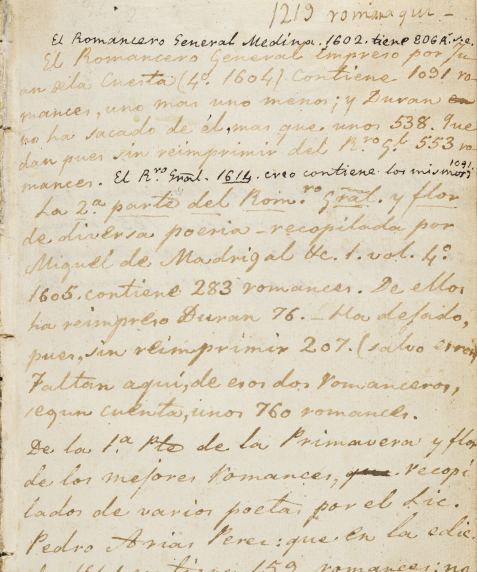 1219 romans aqui —
El Romancero General Medina. 1602. tiene 806 R. se.
El Romancero General impreso por Ju-
an de la Cuesta (4º. 1604) Contiene 1091 ro-
mances, uno mas uno menos; y Duran en
no ha sacado de él, mas que unos 538. Que
dan pues sin reimprimir del R.ro G.l 553 ro-
mances. El R.ro Gral. 1614. creo contiene los mismos 1091.
La 2.a parte del Rom.ro Gral. y flor
de diversa poesia - recopilada por
Miguel de Madrigal &c. 1. vol. 4º
1605. contiene 283 romances. De ellos
ha reimpreso Duran 76. — Ha dejado,
pues, sin reimprimir 207. (salvo error
Faltan aqui, de esos dos romanceros,
segun cuenta, unos 760 romances.
De la 1.a Pte de la Primavera y flor
de los mejores romances, que recopi
lados de varios poetas por el Lic.
Pedro Arias Perez: que en la edic.
159 romances: no